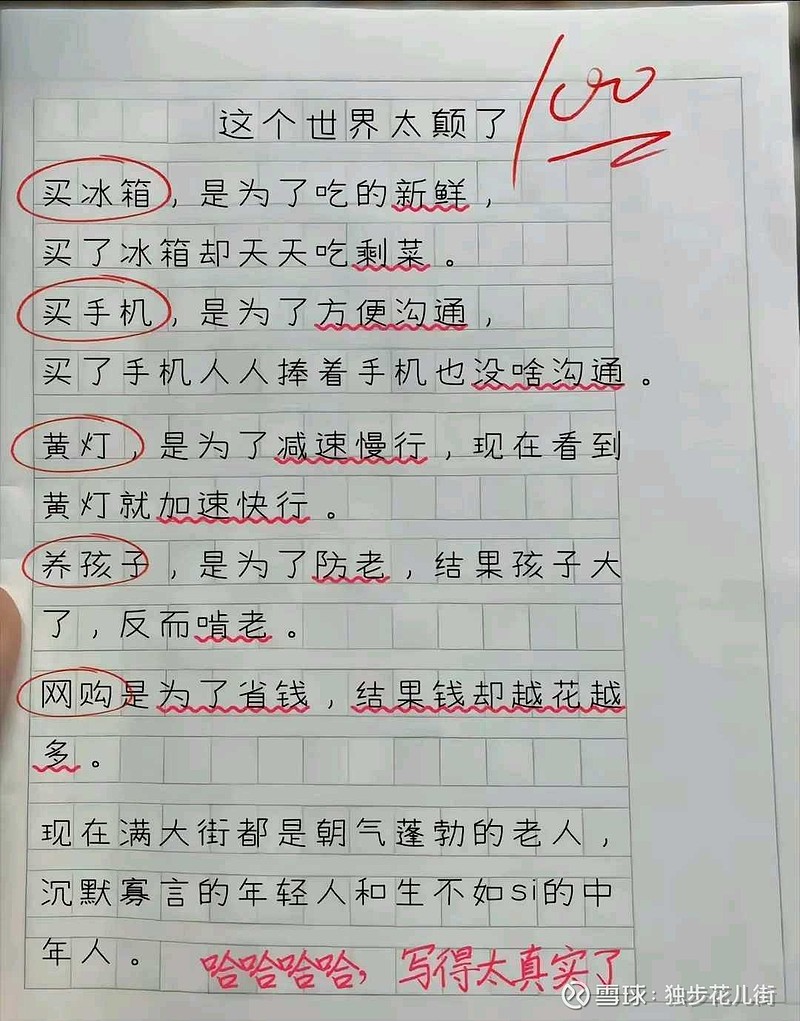 这个世界太颠了
100
买冰箱，是为了吃的新鲜，
买了冰箱却天天吃剩菜。
买手机，是为了方便沟通，
买了手机人人捧着手机也没啥沟通。
黄灯，是为了减速慢行，现在看到
黄灯就加速快行。
养孩子，是为了防老，结果孩子大
了，反而啃老。
网购是为了省钱，结果钱却越花越
多。
现在满大街都是朝气蓬勃的老人，
沉默寡言的年轻人和生不如si的中
年人。
哈哈哈哈，写得太真实了
雪球：独步花儿街